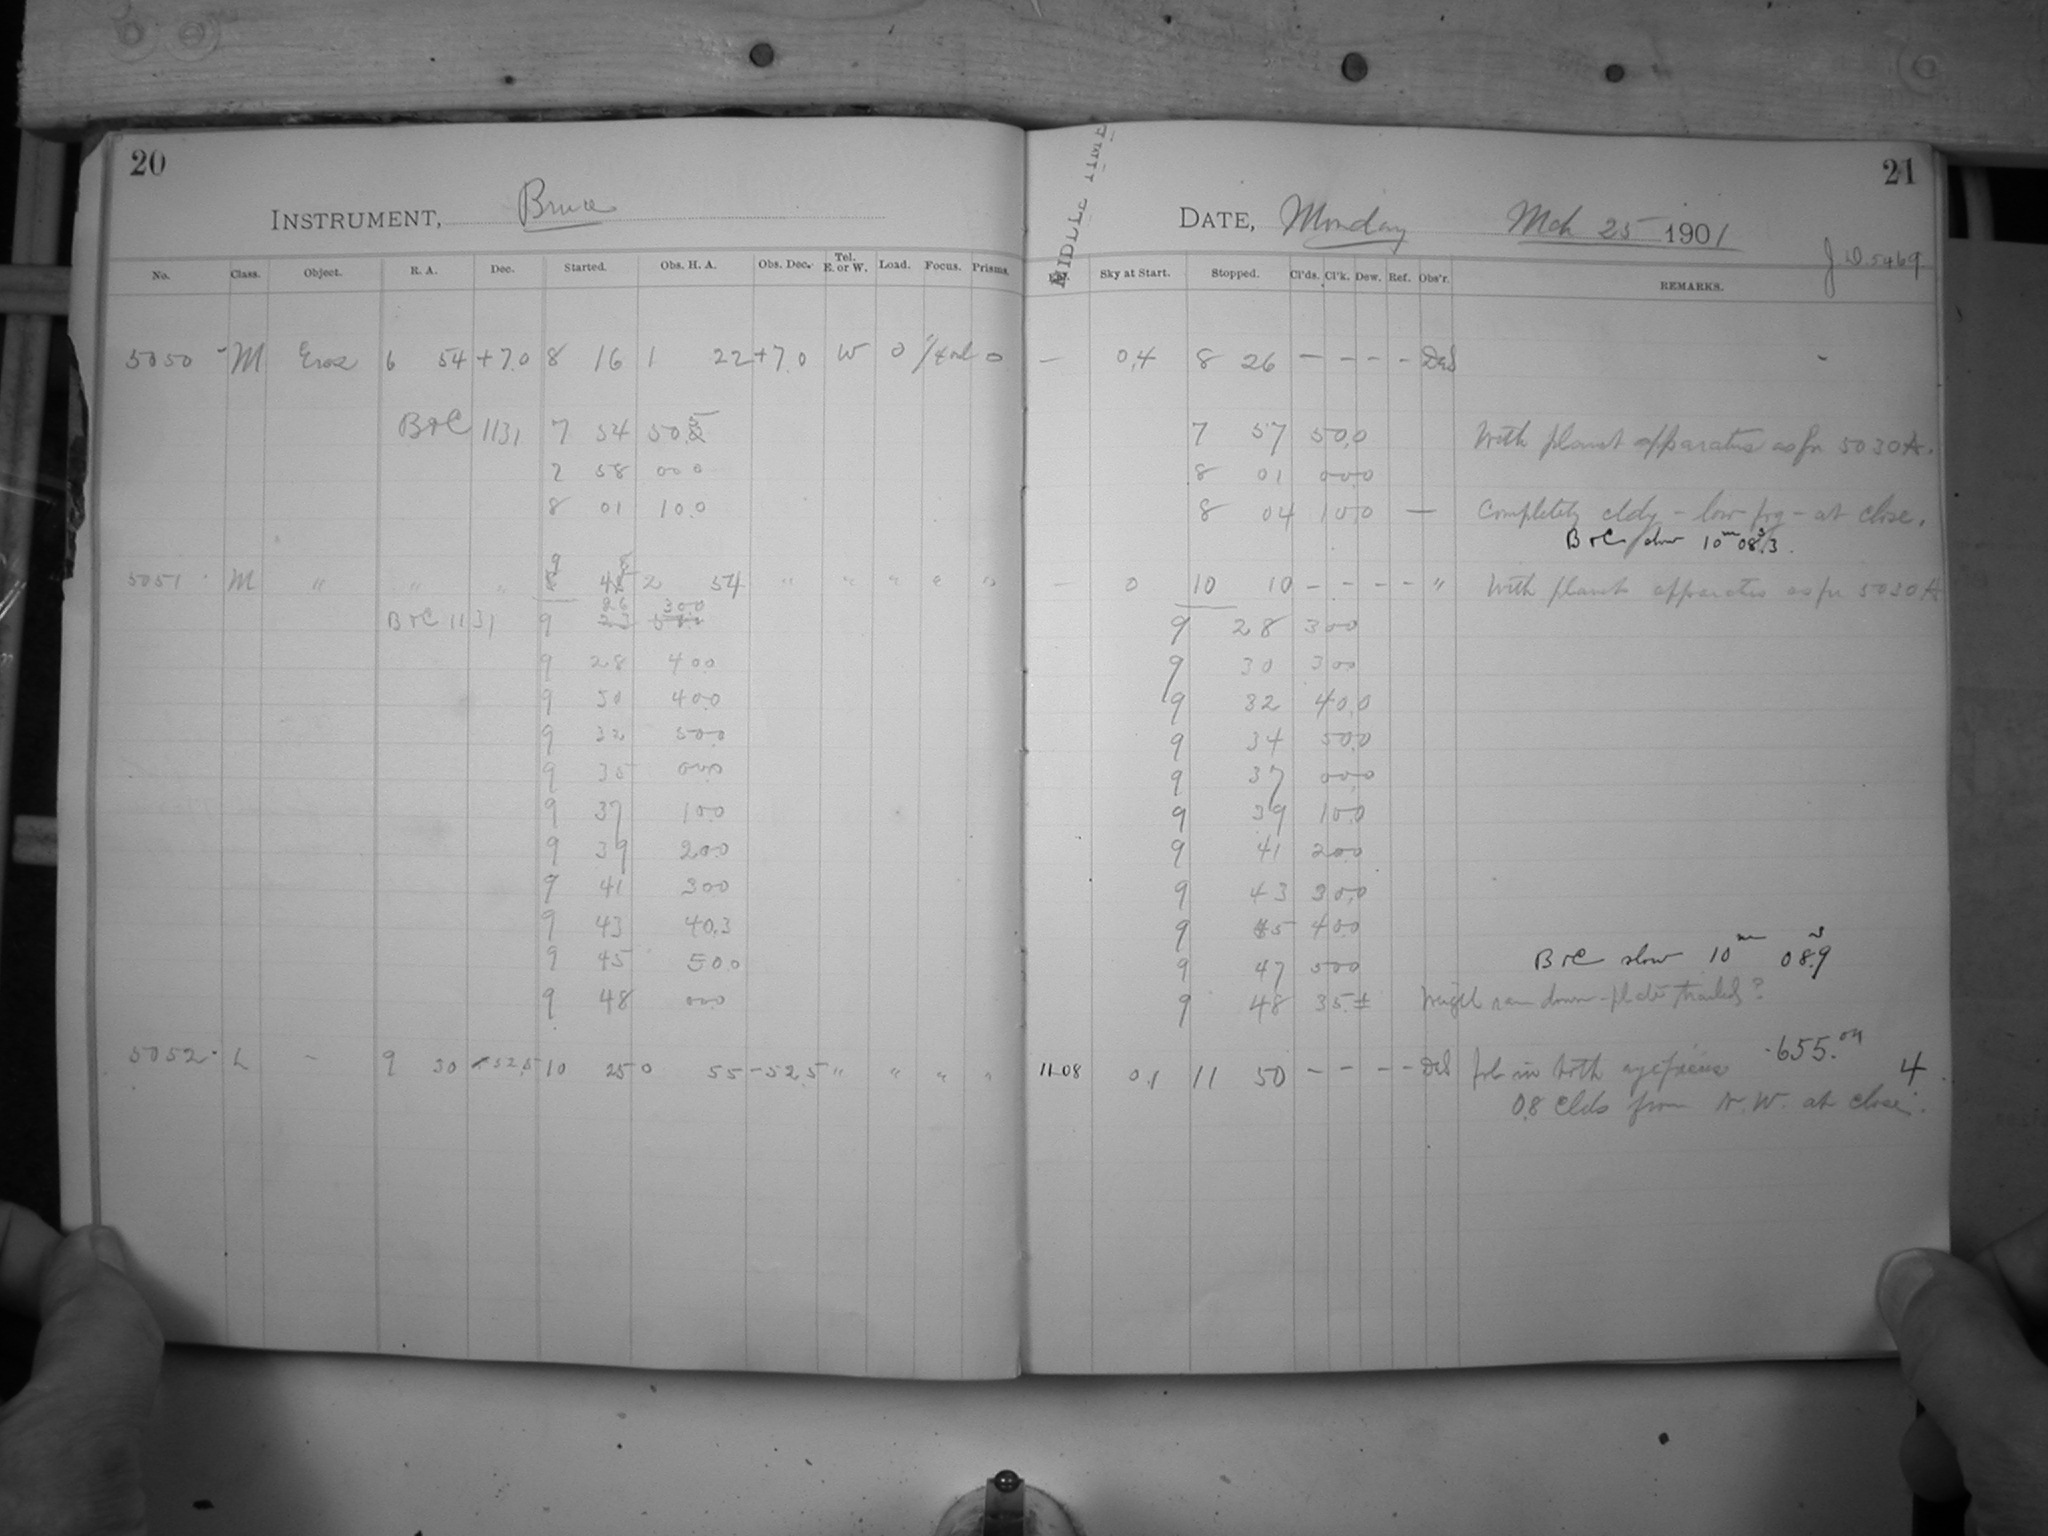 20
INSTRUMENT, Bruce
No. Class. Object. R. A. Dec. Started. Obs. H. A. Obs. Dec. Tel. E. or W. Load. Focus. Prisms.
5050 M Eros 6 54 +7.0 8 16 1 22 +7.0 W 0 0
B&C 1131 7 54 50.
7 58 00.0
8 01 10.0
5051 M " " " 9 2 54 " " " " "
B&C 1131 9 26 30.0
9 28 40.0
9 30 40.0
9 32 50.0
9 35 00.0
9 37 10.0
9 39 20.0
9 41 30.0
9 43 40.3
9 45 50.0
9 48 00.0
5052 L – 9 30 -52.5 10 25 0 55 -52.5 " " " "
21
MIDDLE TIME
DATE, Monday Mch 25 1901
J D. 5469
Sky at Start. Stopped. Cl'ds. Cl'k. Dew. Ref. Obs'r. REMARKS.
– 0.4 8 26 – – – –
7 57 50.0 With planet apparatus as for 5030A.
8 01 00.0
8 04 10.0 — Completely cldy – low fog – at close.
B&C slow 10m 08s.3.
– 0 10 10 – – – – " With planet apparatus as for 5030A
9 28 30.0
9 30 30.0
9 32 40.0
9 34 50.0
9 37 00.0
9 39 10.0
9 41 20.0
9 43 30.0
9 45 40.0
B&C slow 10m 08s.9
9 47 50.0
9 48 35.± Weight ran down – plate trailed?
11-08 0.1 11 50 – – – – in both eyepieces 655. 4
0.8 Clds from N.W. at close.